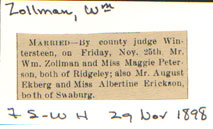 Zollman, Wm
MARRIED—By county judge Win-
tersteen, on Friday, Nov. 25th, Mr.
Wm. Zollman and Miss Maggie Peter-
son, both of Ridgeley; also Mr. August
Ekberg and Miss Albertine Erickson,
both of Swaburg.
7 S-W H 29 Nov 1898